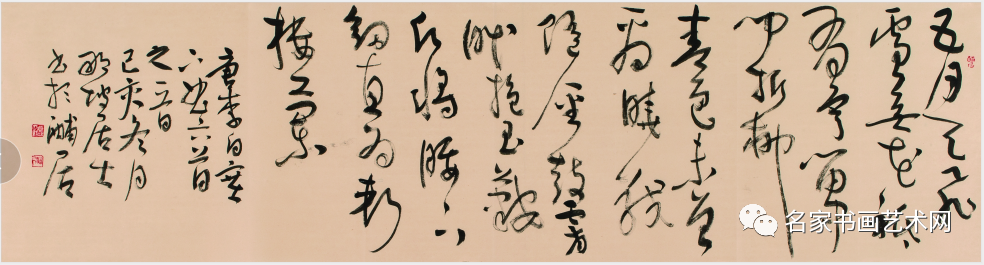 五月天山
雪無花祇
有寒笛中
聞折柳
春色未曾
看曉戰
隨金鼓宵
眠抱玉鞍
願將腰下
劍直為斬
樓蘭
唐李白塞
下曲六首
己亥冬月
居士
書於 居
名家书画艺术网